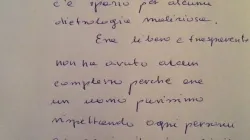 c'è spazio per alcuna
dietrologia maliziosa.
Era libero e trasparente
non ha avuto alcun
complesso perché era
un uomo purissimo
rispettando ogni persona